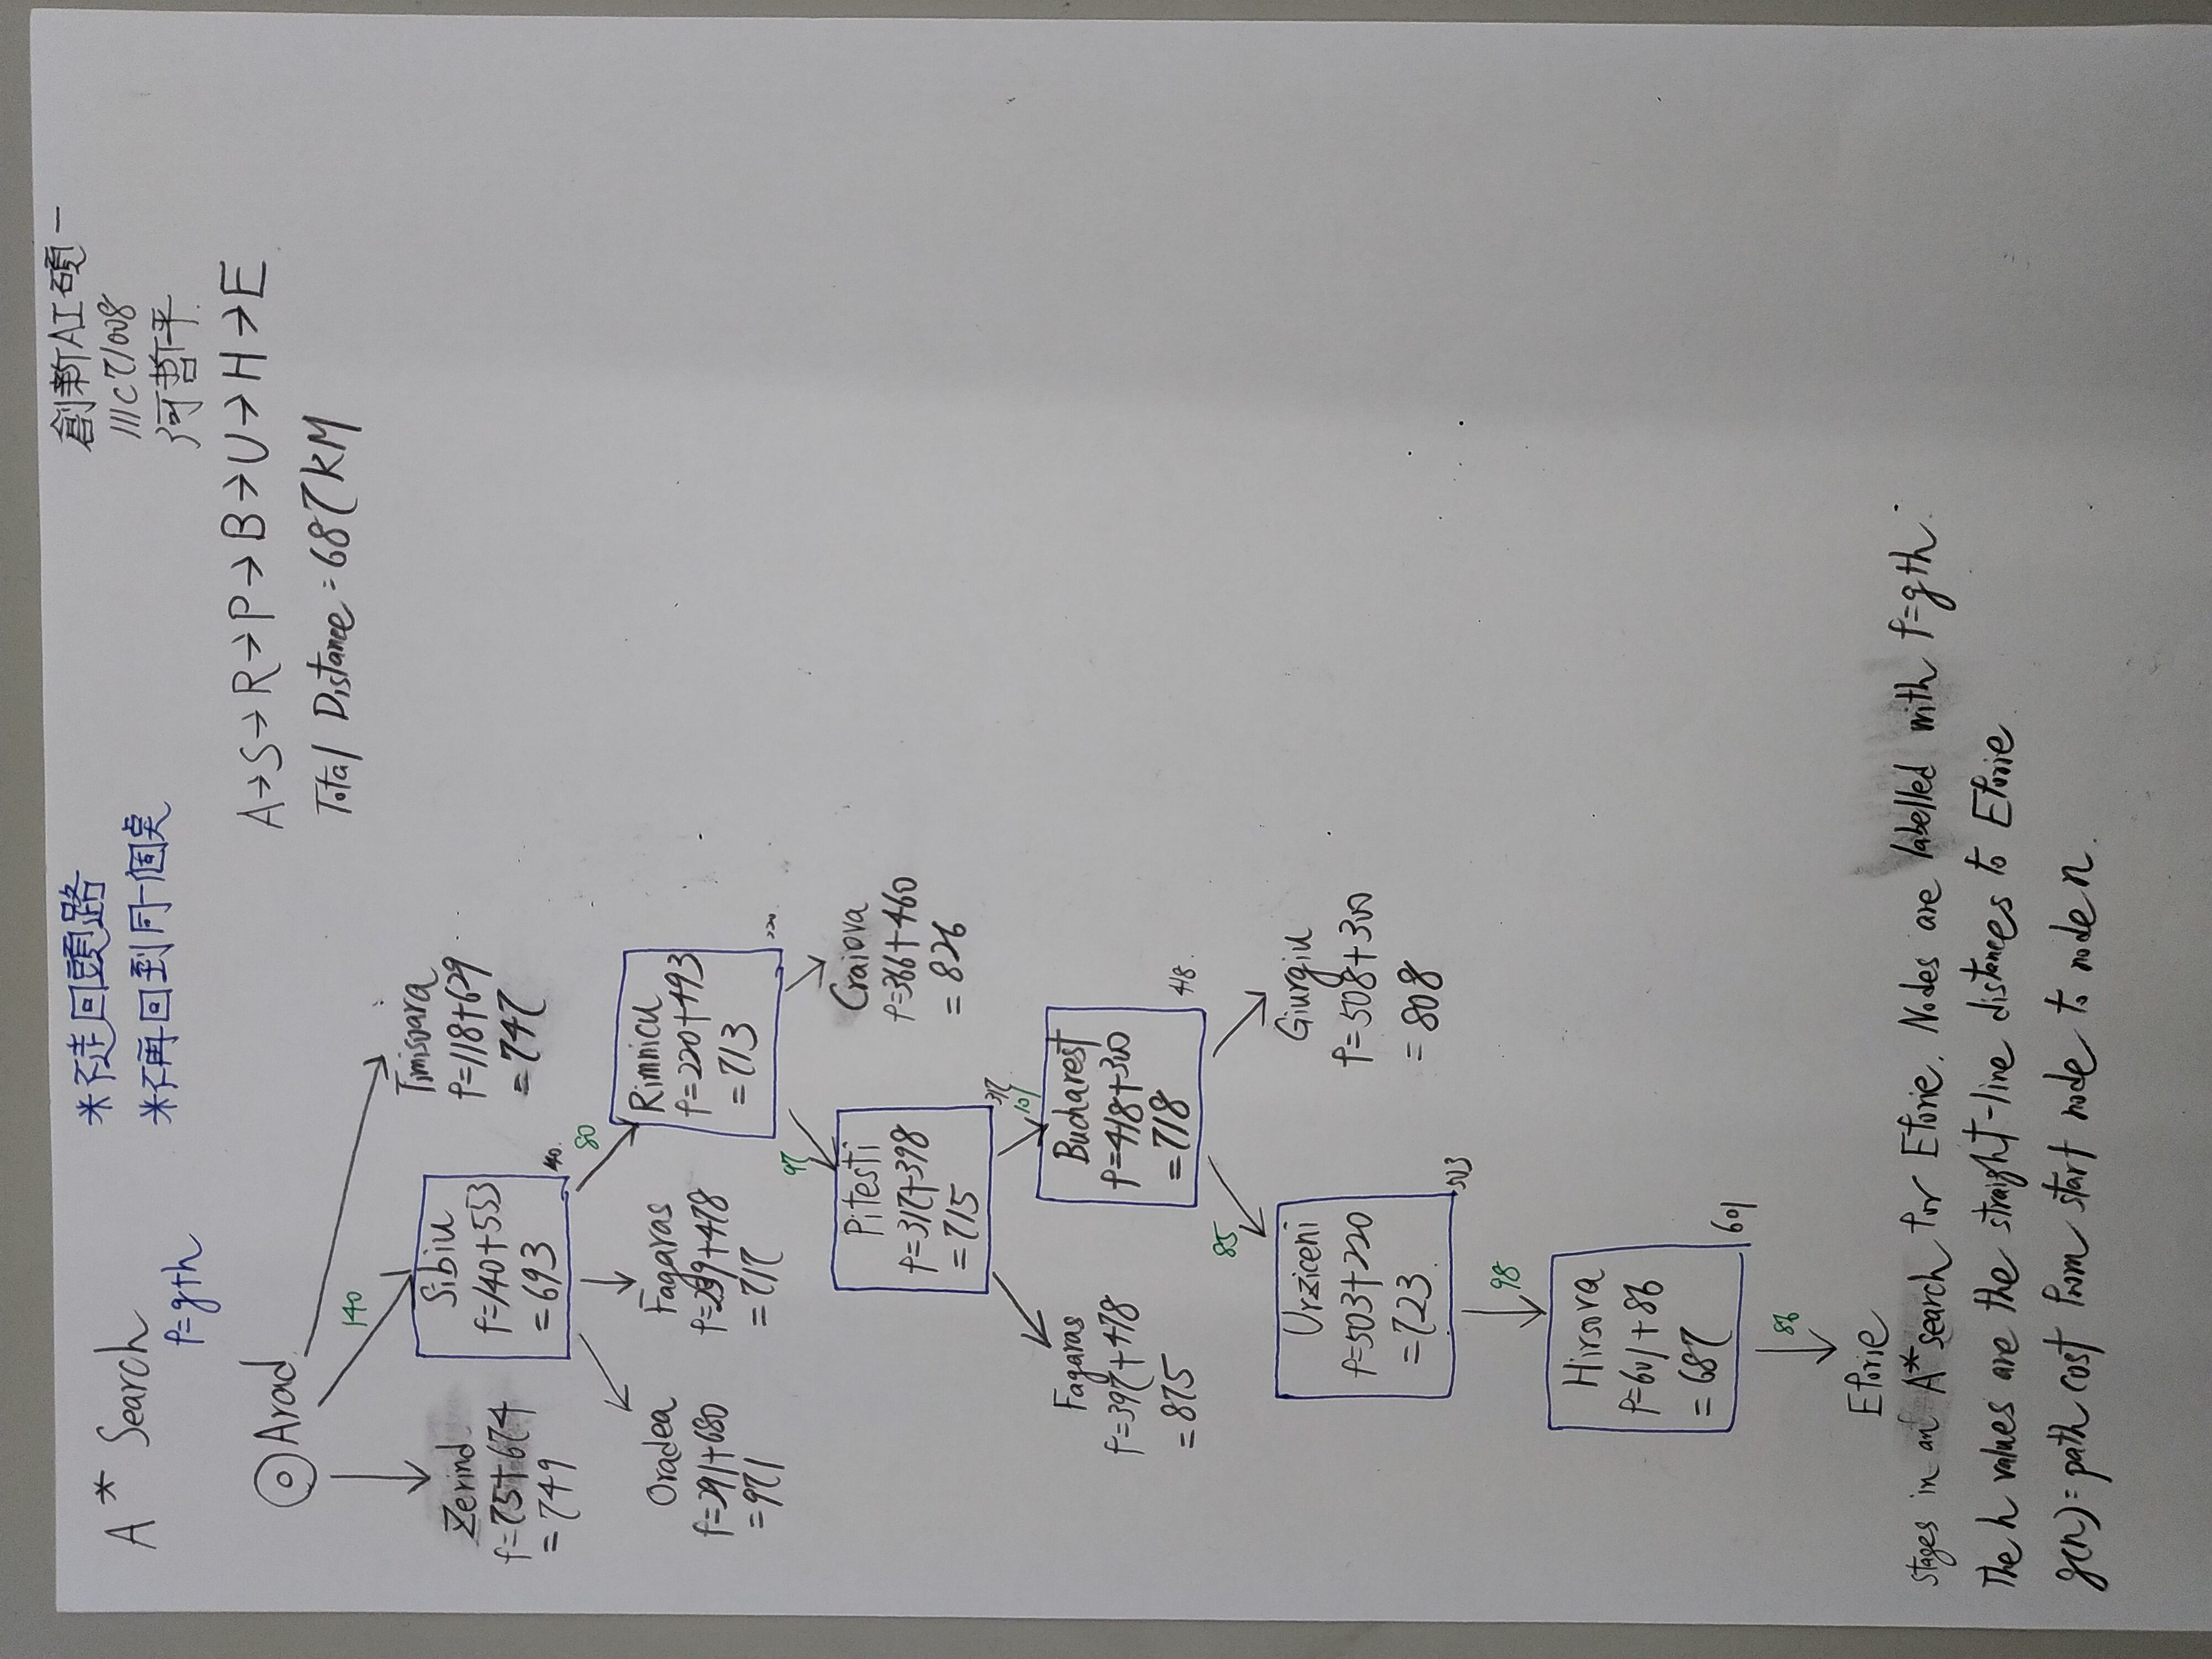 A* Search
f=g+h
*不走回頭路
*不再回到同一個点
創新AI碩一
111C71008
何哲平
A→S→R→P→B→U→H→E
Total Distance=687KM
Arad
140
Zerind
f=75+674
=749
Sibiu
f=140+553
=693
140
Timisoara
f=118+629
=747
80
Oradea
f=291+680
=971
Fagaras
f=239+478
=717
Rimnicu
f=220+493
=713
220
97
Pitesti
f=317+398
=715
317
Craiova
f=366+460
=826
101
Fagaras
f=397+478
=875
Bucharest
f=418+300
=718
418
85
Urziceni
f=503+220
=723
503
Giurgiu
f=508+300
=808
98
Hirsova
f=601+86
=687
601
86
Eforie
stages in an A* search for Eforie. Nodes are labelled with f=g+h.
The h values are the straight-line distances to Eforie
g(n)=path cost from start node to node n.